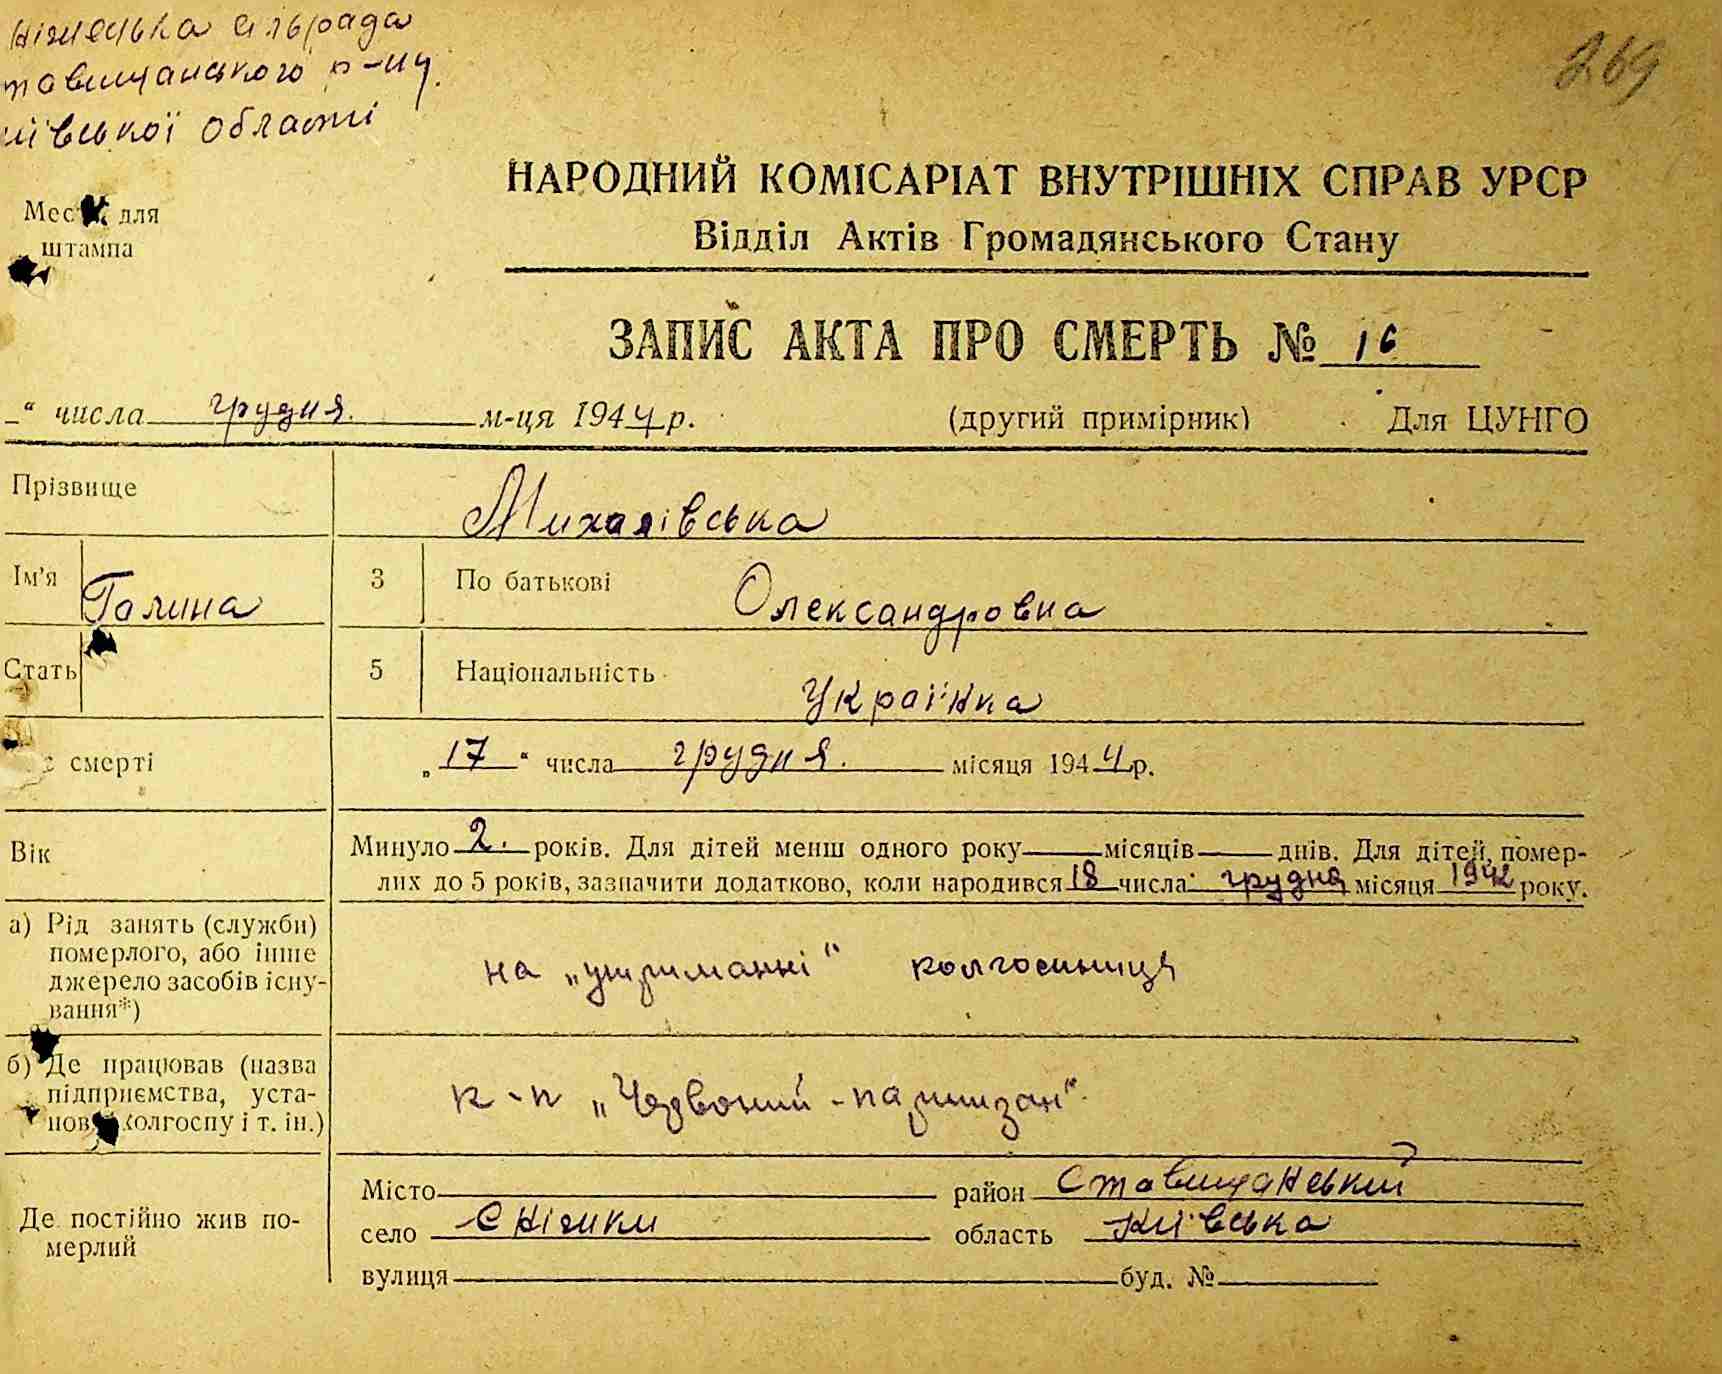 сільрада
р-ну
області
269
Место для
штампа
НАРОДНИЙ КОМІСАРІАТ ВНУТРІШНІХ СПРАВ УРСР
Відділ Актів Громадянського Стану
ЗАПИС АКТА ПРО СМЕРТЬ № 16
“ числа грудня. м-ця 1944 р. (другий примірник) Для ЦУНГО
Прізвище Михалівська
Ім'я Галина 3 По батькові Олександровна
Стать 5 Національність Українка
смерті „17“ числа грудня. місяця 1944 р.
Вік Минуло 2. років. Для дітей менш одного року місяців днів. Для дітей, помер-
лих до 5 років, зазначити додатково, коли народився 18 числа грудня місяця 1942 року.
а) Рід занять (служби)
померлого, або інше
джерело засобів існу-
вання*)
на „утриманні“ колгоспниця
б) Де працював (назва
підприємства, уста-
нов, колгоспу і т. ін.)
к-п „Червоний-партизан“
Де постійно жив по-
мерлий
Місто район Ставищанський
село Сніжки область Київська
вулиця буд. №